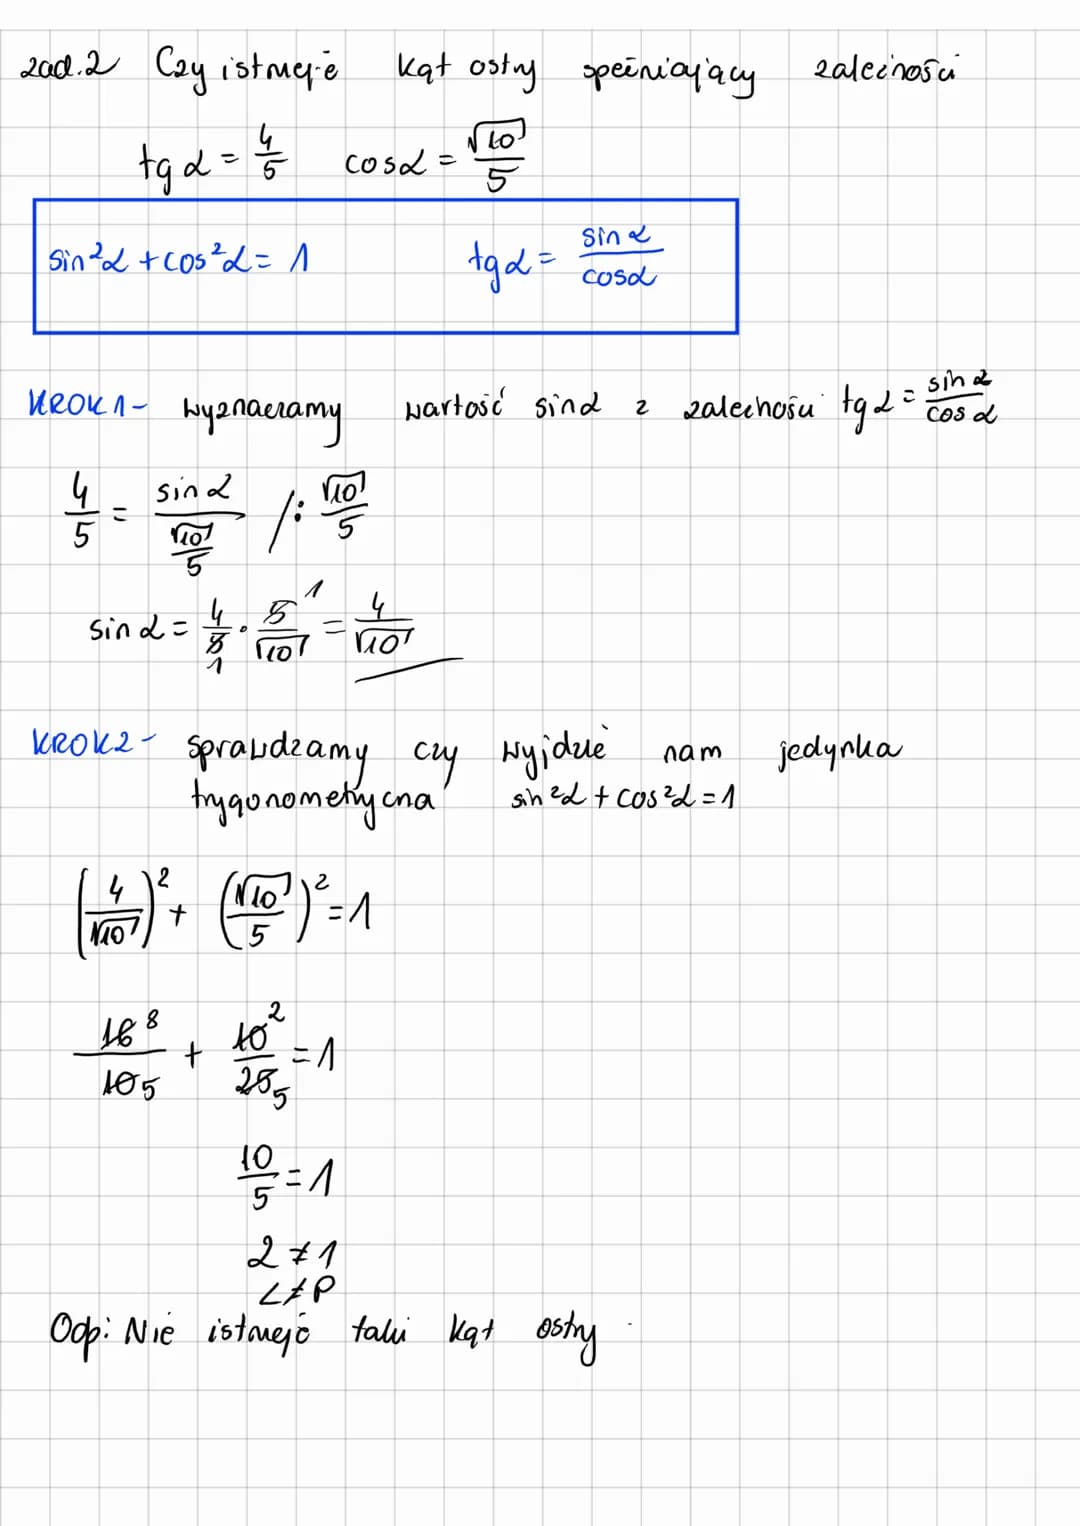 zad.2 Czy istnieje kąt ostry spełniający zależności
tg α = 4/5 cos α = √10/5
sin²α + cos²α = 1 tg α = sin α / cos α
KROK 1 - wyznaczamy wartość sin α z zależności tg α = sin α / cos α
4/5 = sin α / (√10/5) /: √10/5
sin α = 4/5 1 · 5/√10 1 = 4/√10
KROK 2 - sprawdzamy czy wyjdzie nam jedynka
trygonometryczna sin²α + cos²α = 1
(4/√10)² + (√10/5)² = 1
16 8/10 5 + 10 2/25 5 = 1
10/5 = 1
2 ≠ 1
L ≠ P
Odp: Nie istnieje taki kąt ostry.